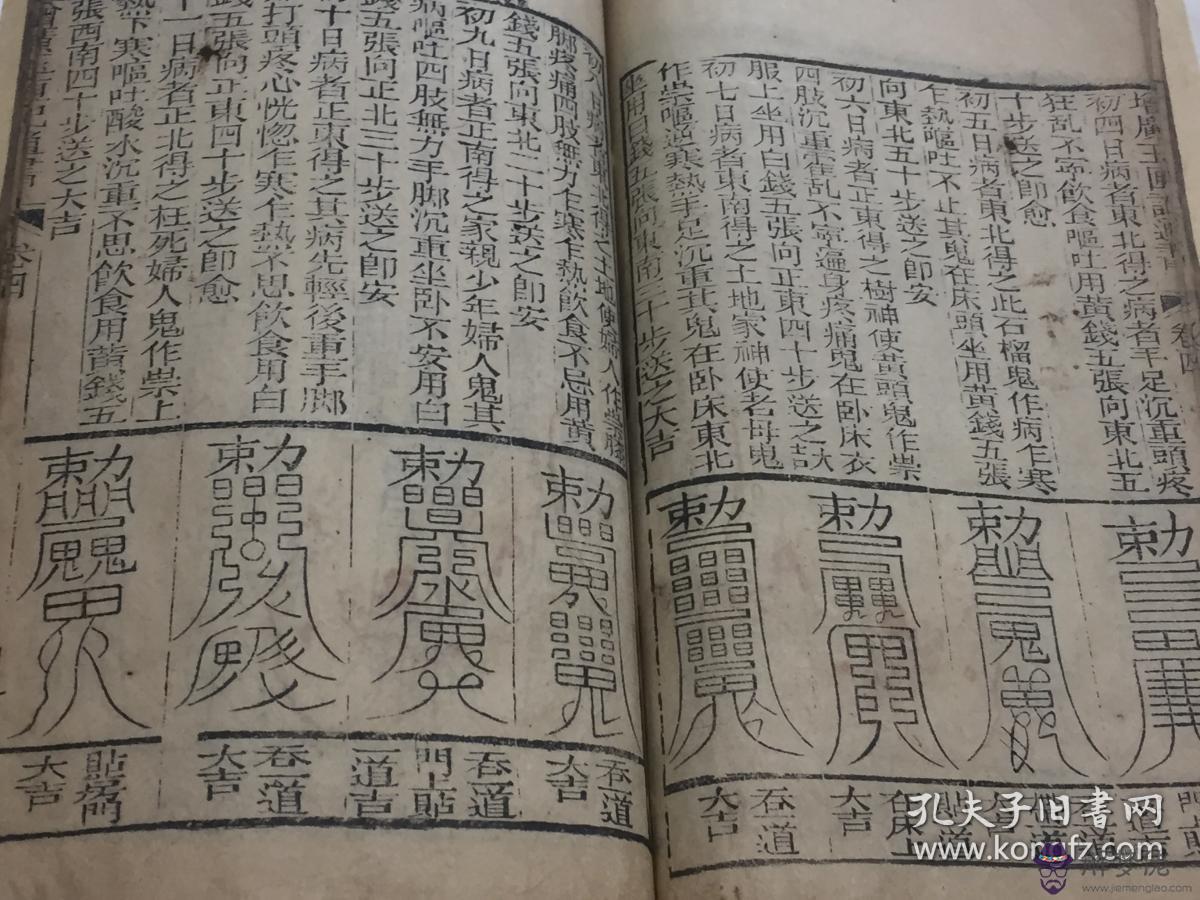 初四日病者東北得之病者手足沉重頭疼
狂亂不寧飲食嘔吐用黃錢五張向東北五
十步送之即愈
初五日病者東北得之此石榴鬼作病乍寒
乍熱嘔吐不止其鬼在床頭坐用黃錢五張
向東北五十步送之即安
初六日病者正東得之樹神使黃頭鬼作祟
四肢沉重霍亂不寧遍身疼痛鬼在卧床衣
服上坐用白錢五張向正東四十步送之
初七日病者東南得之土地家神使老母鬼
作祟嘔逆寒熱手足沉重其鬼在卧床東北
坐用白錢五張向東南三十步送之大吉
卷四
勅
勅
勅
勅
大吉
在床上
大吉
吞一道
大吉
土地使婦人作祟
脚疼痛四肢無力乍寒乍熱飲食不忌用黃
錢五張向東北二十步送之即安
初九日病者正南得之家親少年婦人鬼其
病嘔吐四肢無力手脚沉重坐卧不安用白
錢五張向正北三十步送之即安
初十日病者正東得之其病先輕後重手脚
打頭疼心恍惚乍寒乍熱不思飲食用白
錢五張向正東四十步送之即愈
十一日病者正北得之枉死婦人鬼作祟上
熱下寒嘔吐酸水沉重不思飲食用黃錢五
張西南四十步送之大吉
卷四
勅
勅
勅
勅
吞一道
大吉
吞一道
門上貼
一道吉
吞一道
大吉
貼房門
大吉
孔夫子旧书网
www.kongfz.com
解梦佬
www.jiemenglao.com